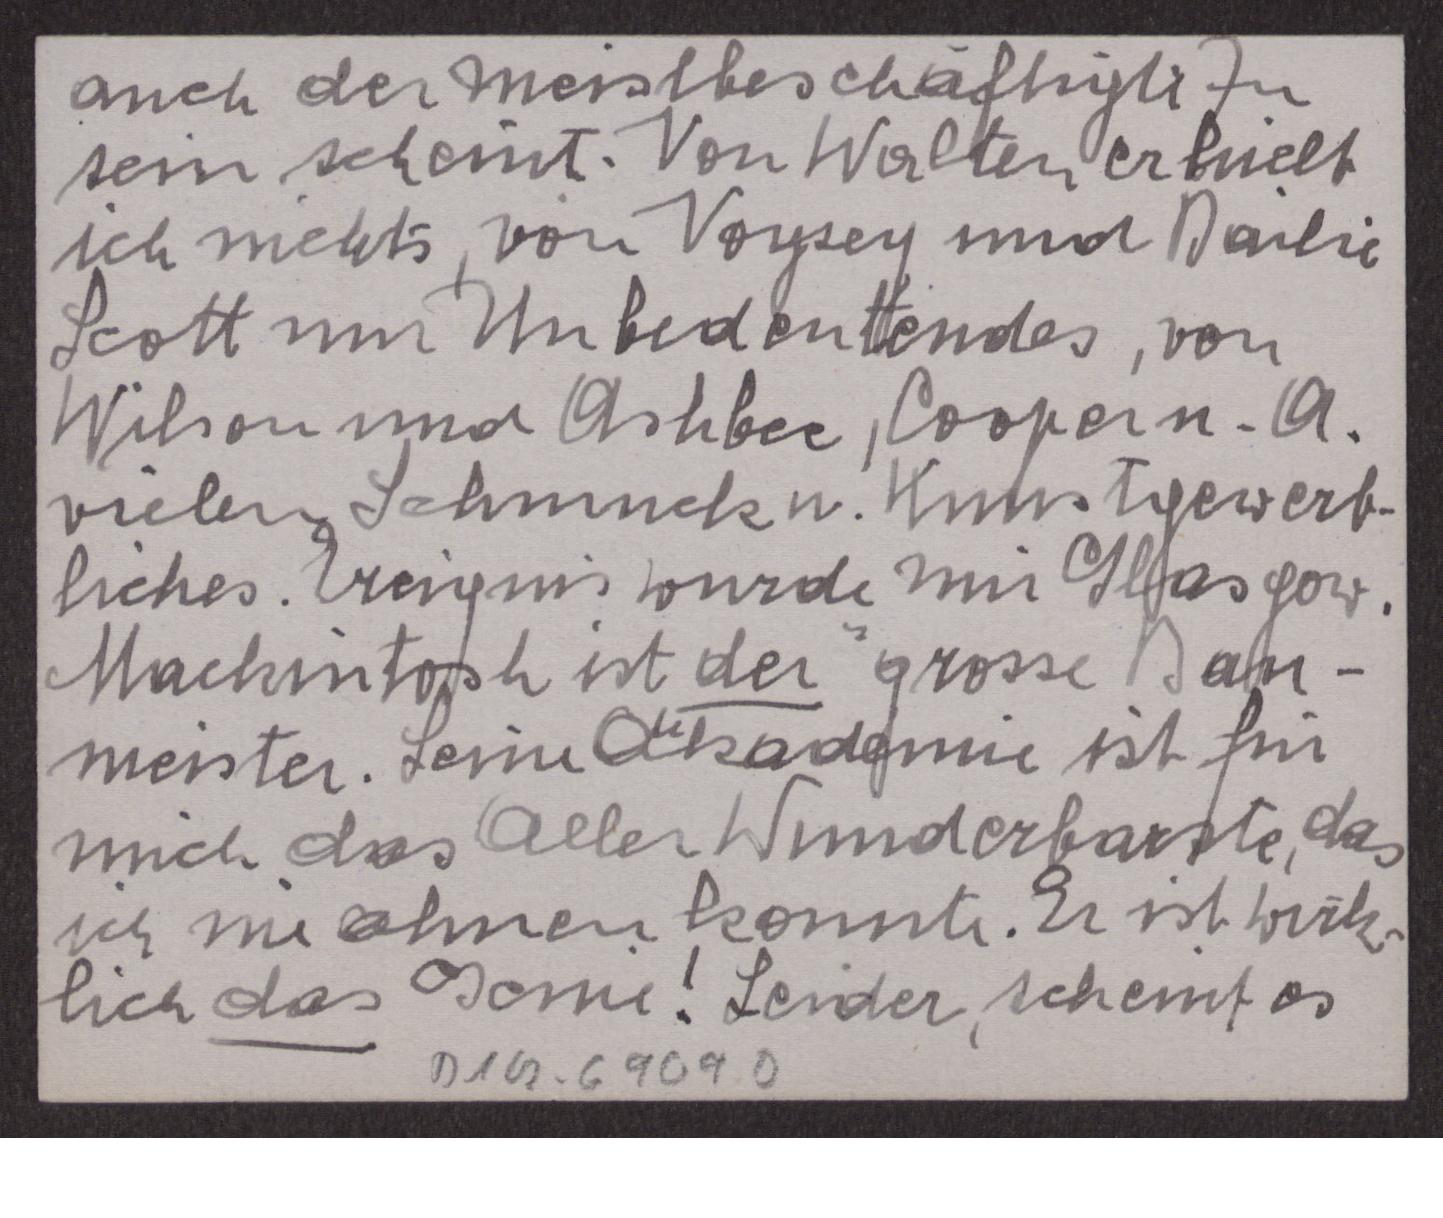 auch der Meistbeschäftigte zu
sein scheint. Von Walton erhielt
ich nichts, von Voysey und Bailie
Scott nur Unbedeuttendes, von
Wilson und Ashbee, Cooper u. A.
vielen Schmuck u. Kunstgewerb-
liches. Ereignis wurde mir Glasgow.
Mackintosh ist der grosse Bau-
meister. Seine Akademie ist für
mich das Aller Wunderbarste, das
ich nie ahnen konnte. Er ist wirk-
lich das Genie! Leider, scheint es